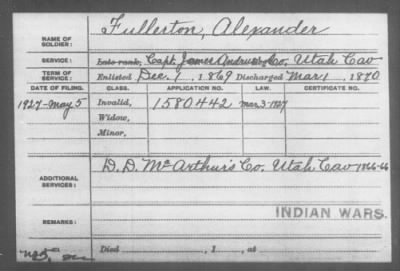 Fullerton, Alexander
NAME OF SOLDIER:
SERVICE: Late rank, Capt. James Andrus Co. Utah Cav
TERM OF SERVICE: Enlisted Dec. 1, 1869 Discharged Mar 1, 1870
DATE OF FILING. CLASS. APPLICATION NO. LAW. CERTIFICATE NO.
1927-May 5 Invalid, 1580442 Mar 3-1927
Widow,
Minor,
D. D. McArthur's Co. Utah Cav 1866-66
ADDITIONAL SERVICES:
INDIAN WARS.
REMARKS:
Died , 1 , at